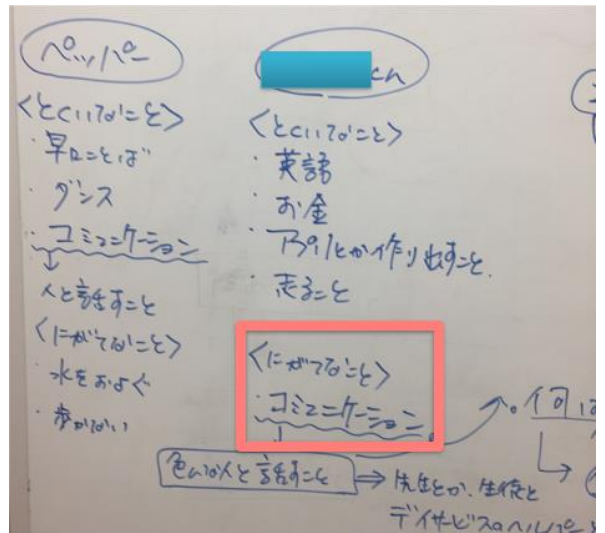 ペッパー
<とくいなこと>
・早口ことば
・ダンス
・コミュニケーション
↓
人と話すこと
<にがてなこと>
・水をおよぐ
・歩かない
くん
<とくいなこと>
・英語
・お金
・アプリとか作り出すこと.
・走ること
<にがてなこと>
・コミュニケーション
↓
色んな人と話すこと
⇒ 先生とか、生徒と
デイサービスのヘルパー
。何